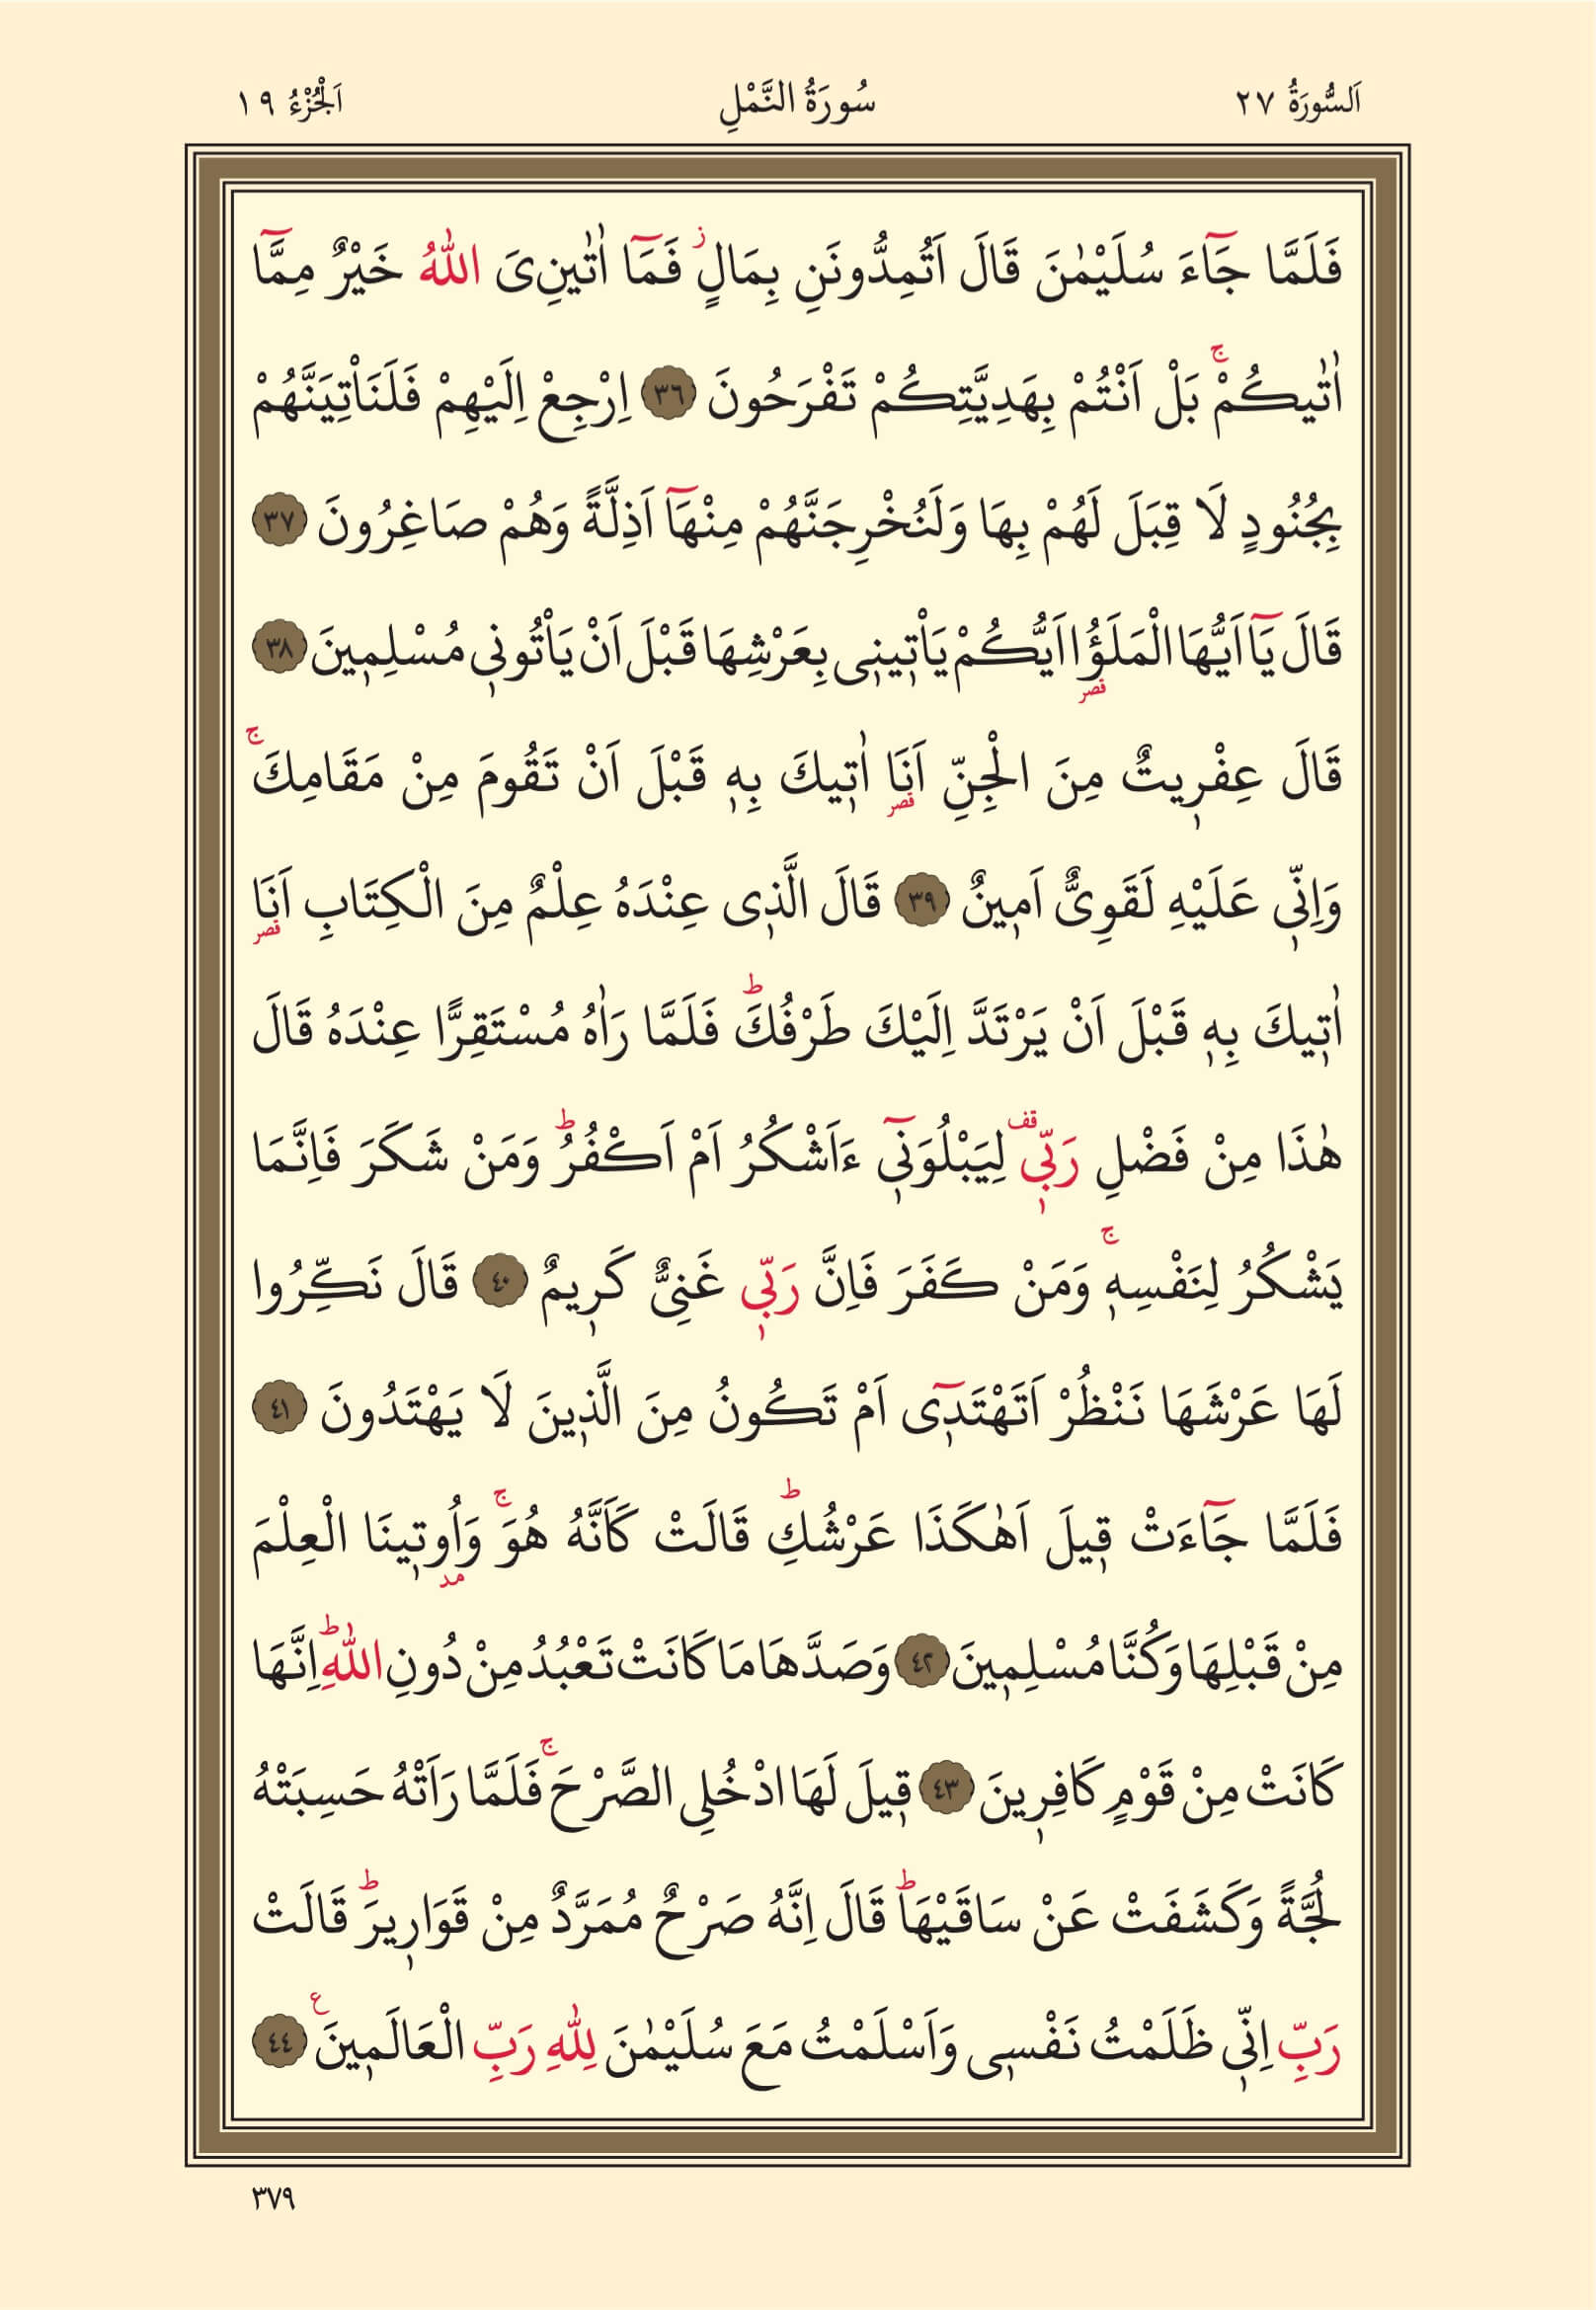 اَلسُّورَةُ ٢٧ سُورَةُ النَّمْلِ اَلْجُزْءُ ١٩
فَلَمَّا جَٓاءَ سُلَيْمٰنَ قَالَ اَتُمِدُّونَنِ بِمَالٍۘ فَمَٓا اٰتٰينِىَ اللّٰهُ خَيْرٌ مِمَّٓا
اٰتٰيكُمْۚ بَلْ اَنْتُمْ بِهَدِيَّتِكُمْ تَفْرَحُونَ ٣٦ اِرْجِعْ اِلَيْهِمْ فَلَنَأْتِيَنَّهُمْ
بِجُنُودٍ لَا قِبَلَ لَهُمْ بِهَا وَلَنُخْرِجَنَّهُمْ مِنْهَٓا اَذِلَّةً وَهُمْ صَاغِرُونَ ٣٧
قَالَ يَٓا اَيُّهَا الْمَلَؤُ۬ا اَيُّكُمْ يَأْت۪ين۪ى بِعَرْشِهَا قَبْلَ اَنْ يَأْتُون۪ى مُسْلِم۪ينَ ٣٨
قَالَ عِفْر۪يتٌ مِنَ الْجِنِّ اَنَا۬ اٰت۪يكَ بِه۪ قَبْلَ اَنْ تَقُومَ مِنْ مَقَامِكَۚ
وَاِنّ۪ى عَلَيْهِ لَقَوِىٌّ اَم۪ينٌ ٣٩ قَالَ الَّذ۪ى عِنْدَهُ عِلْمٌ مِنَ الْكِتَابِ اَنَا۬
اٰت۪يكَ بِه۪ قَبْلَ اَنْ يَرْتَدَّ اِلَيْكَ طَرْفُكَۜ فَلَمَّا رَاٰهُ مُسْتَقِرًّا عِنْدَهُ قَالَ
هٰذَا مِنْ فَضْلِ رَبّ۪ى۠ لِيَبْلُوَن۪ٓى ءَاَشْكُرُ اَمْ اَكْفُرُۜ وَمَنْ شَكَرَ فَاِنَّمَا
يَشْكُرُ لِنَفْسِه۪ۚ وَمَنْ كَفَرَ فَاِنَّ رَبّ۪ى غَنِىٌّ كَر۪يمٌ ٤٠ قَالَ نَكِّرُوا
لَهَا عَرْشَهَا نَنْظُرْ اَتَهْتَد۪ٓى اَمْ تَكُونُ مِنَ الَّذ۪ينَ لَا يَهْتَدُونَ ٤١
فَلَمَّا جَٓاءَتْ ق۪يلَ اَهٰكَذَا عَرْشُكِۜ قَالَتْ كَاَنَّهُ هُوَۚ وَاُو۫ت۪ينَا الْعِلْمَ
مِنْ قَبْلِهَا وَكُنَّا مُسْلِم۪ينَ ٤٢ وَصَدَّهَا مَا كَانَتْ تَعْبُدُ مِنْ دُونِ اللّٰهِۜ اِنَّهَا
كَانَتْ مِنْ قَوْمٍ كَافِر۪ينَ ٤٣ ق۪يلَ لَهَا ادْخُلِى الصَّرْحَۚ فَلَمَّا رَاَتْهُ حَسِبَتْهُ
لُجَّةً وَكَشَفَتْ عَنْ سَاقَيْهَاۜ قَالَ اِنَّهُ صَرْحٌ مُمَرَّدٌ مِنْ قَوَار۪يرَۜ قَالَتْ
رَبِّ اِنّ۪ى ظَلَمْتُ نَفْس۪ى وَاَسْلَمْتُ مَعَ سُلَيْمٰنَ لِلّٰهِ رَبِّ الْعَالَم۪ينَ۟ ٤٤
٣٧٩